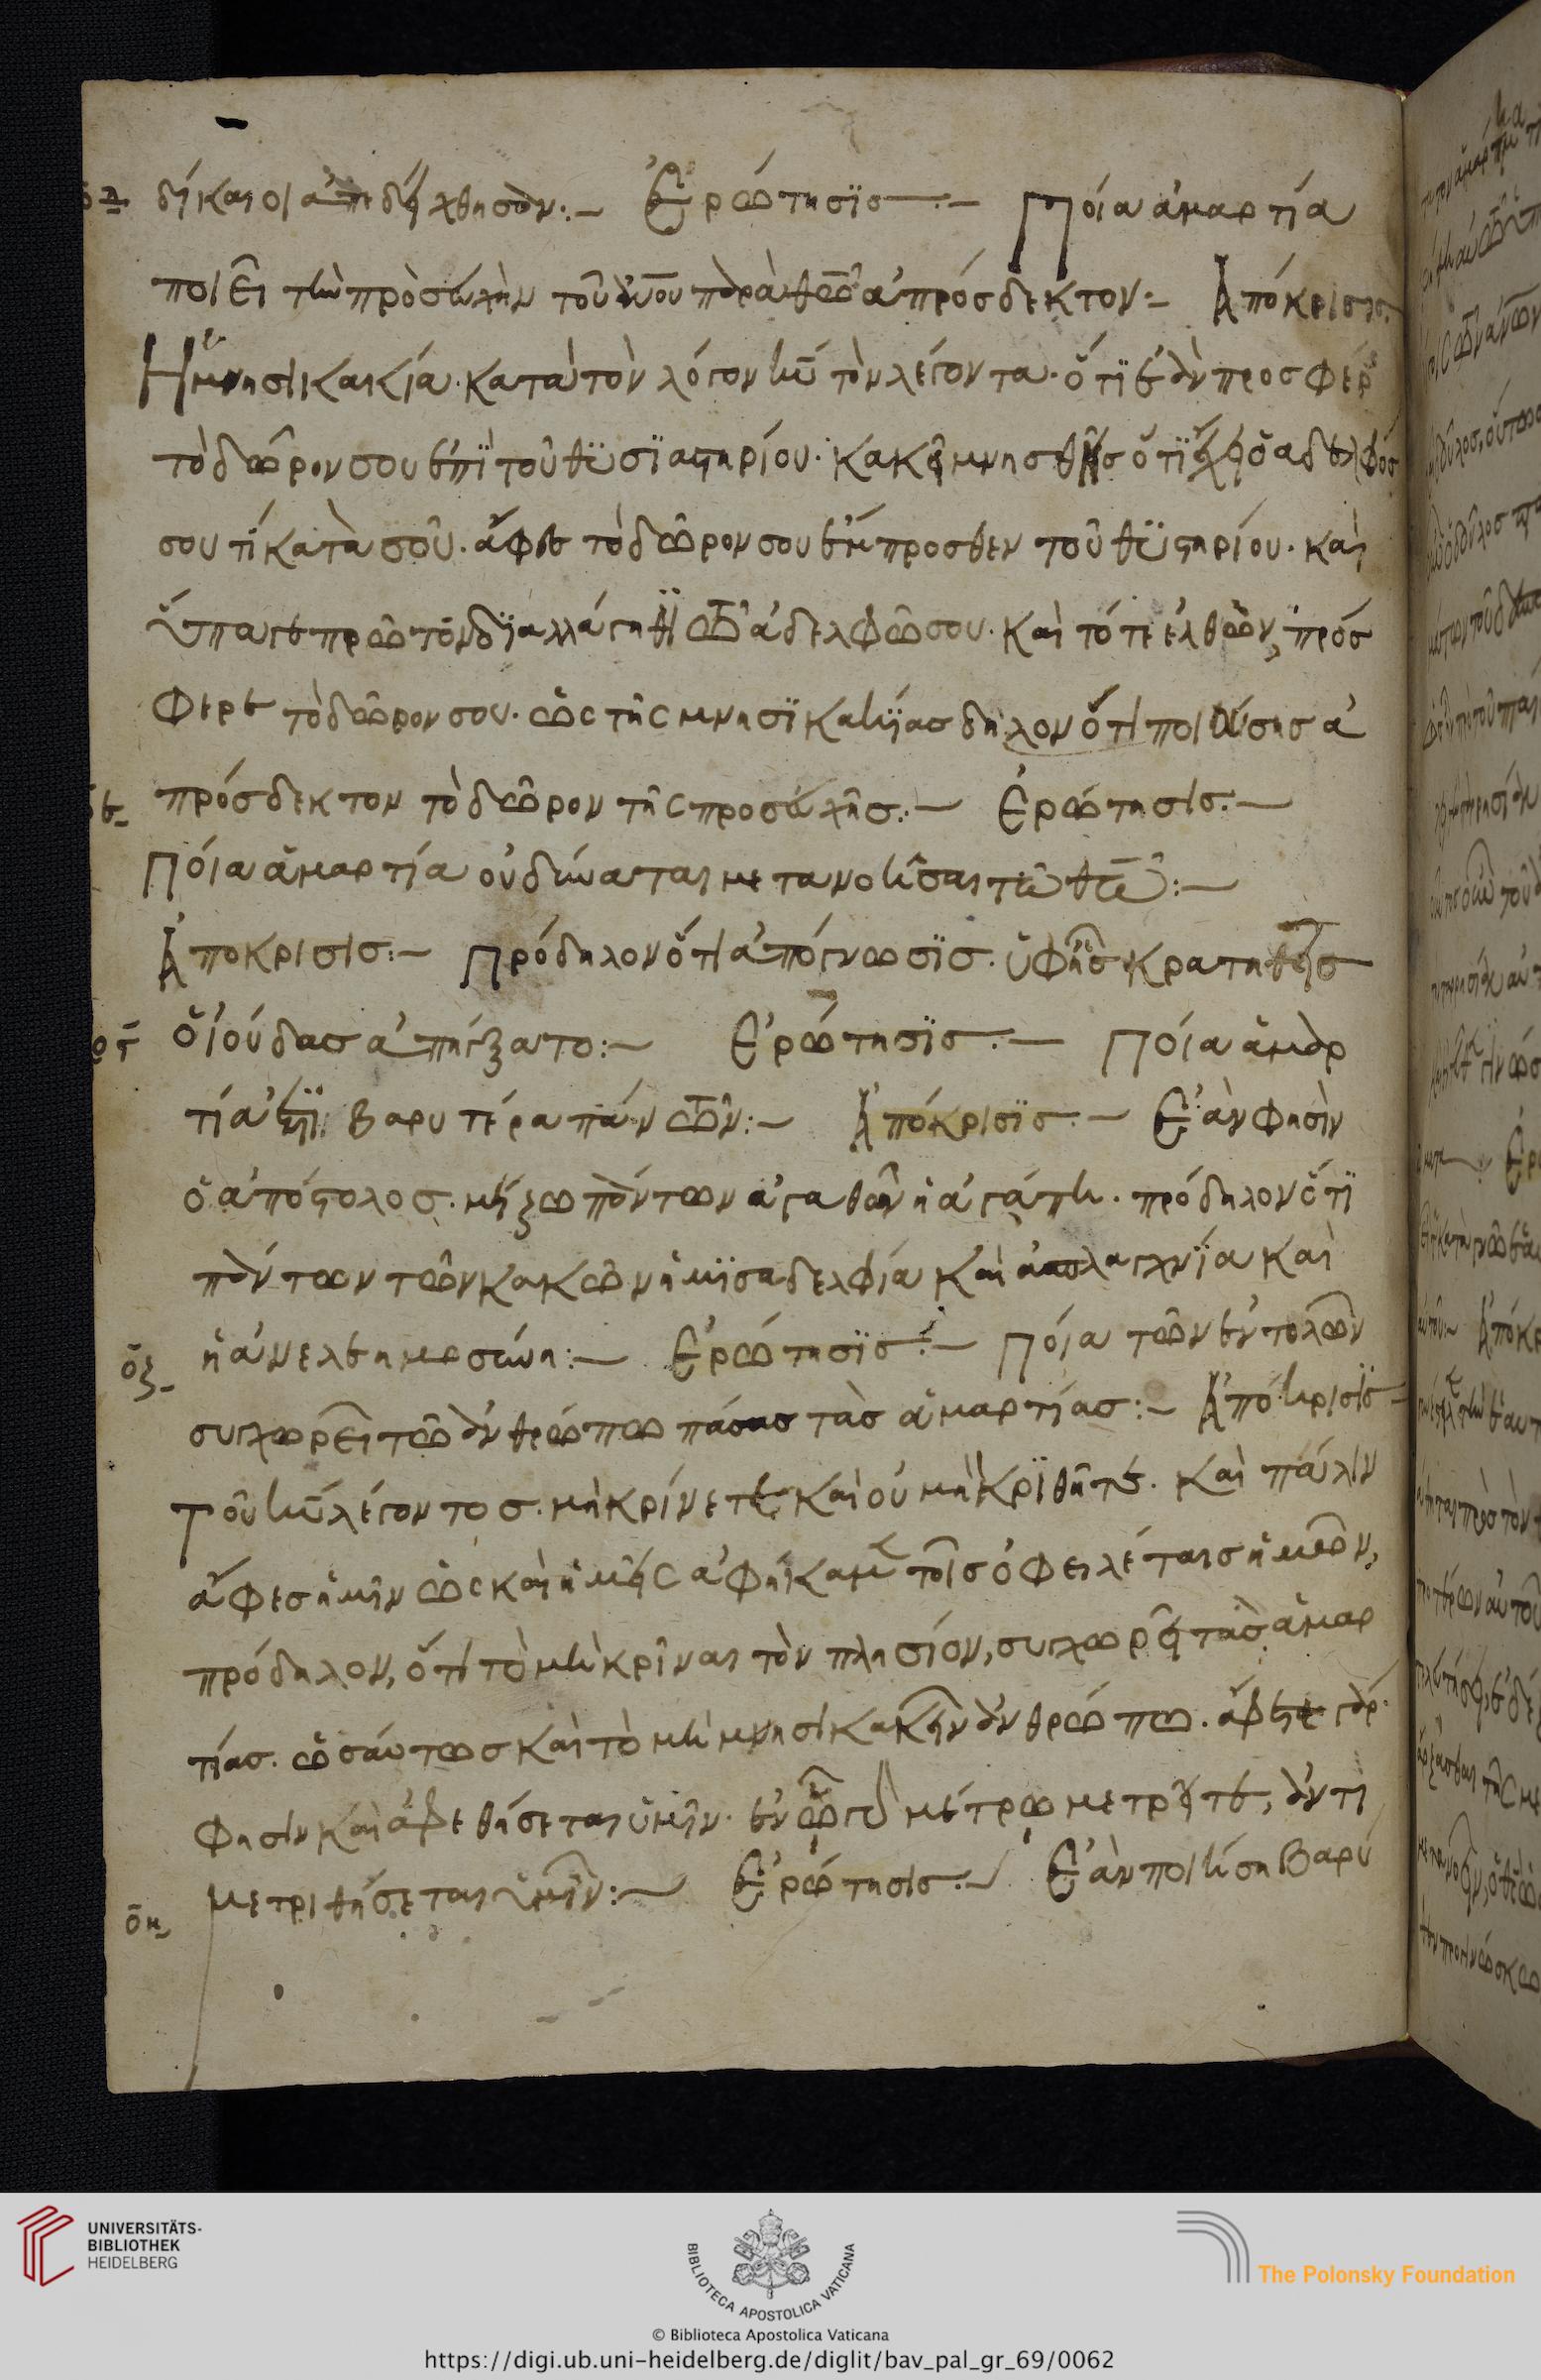 δίκαιοι ἀπεδείχθησαν:— Ἐρώτησϊς:— Ποία ἁμαρτία
ποιεῖ τὴν προσευχὴν τοῦ ἀνου παρὰ θῶ ἀπρόσδεκτον:— Ἀπόκρισις:
Ἡ μνησικακία· κατὰ τὸν λόγον κυ τὸν λέγοντα· ὅτϊ ἐὰν προσφέρ
τὸ δῶρον σου ἐπϊ τοῦ θϋσϊαστηρίου· κακεῖ μνησθῆς ὅτϊ ἔχει ὁ αδελφός
σου τί κατὰ σοῦ· ἄφες τὸ δῶρον σου ἔμπροσθεν τοῦ θϋστηρίου· καὶ
ὕπαγε πρῶτον δϊαλλάγηθϊ τῶ ἀδελφῶ σου· καὶ τότε ἐλθὼν, πρόσ
φερε τὸ δῶρον σου· ὡς τῆς μνησϊκακϊας δηλονότι ποιούσης ἀ
πρόσδεκτον τὸ δῶρον τῆς προσευχῆς:— Ἐρώτησις:—
Ποία ἁμαρτία οὐ δύναται μετανοῆσαι τῶ θῶ:—
Ἀποκρισις:— Πρόδηλον ὅτι ἀπόγνωσϊς· ὑφ ῆς κρατηθεὶς
ὁ ἰούδας ἀπήγξατο:— Ἐρώτησϊς:— Ποία ἁμαρ
τία ἐστϊ βαρυτέρα πάντων:— Ἀπόκρισϊς:— Ἐὰν φησὶν
ὁ ἀπόστολος· μείζω πάντων ἀγαθῶν ἡ ἀγάπη· πρόδηλον ὅτϊ
πάντων τῶν κακῶν ἡ μϊσαδελφία καὶ ἀσπλαγχνϊα καὶ
ἡ ἀνελεημοσύνη:— Ἐρώτησϊς:— Ποία τῶν ἐντολῶν
συγχωρεῖ τῶ ἀνθρώπω πάσας τὰς ἁμαρτίας:— Ἀπόκρισϊς—
Τοῦ κυ λέγοντος· μὴ κρίνετε καὶ οὐ μὴ κρϊθῆτε· καὶ πάλιν
ἄφες ἡμῖν ὡς καὶ ἡμεῖς ἀφήκαμεν τοῖς ὀφειλέταις ἡμῶν,
πρόδηλον, ὅτι τὸ μὴ κρῖναι τὸν πλησίον, συγχωρεῖ τὰς ἁμαρ
τίας· ὡσαύτως καὶ τὸ μὴ μνησικακεῖν ἀνθρώπω· ἄφετε γάρ·
φησιν καὶ ἀφεθήσεται ὑμῖν· ἐν ῶ γὰρ μέτρω μετρεῖτε, ἀντι
μετριθήσεται ὑμῖν:— Ἐρώτησις:— Ἐὰν ποιήση βαρύ
οξ
οη
UNIVERSITÄTS-
BIBLIOTHEK
HEIDELBERG
BIBLIOTECA APOSTOLICA VATICANA
The Polonsky Foundation
© Biblioteca Apostolica Vaticana
https://digi.ub.uni-heidelberg.de/diglit/bav_pal_gr_69/0062